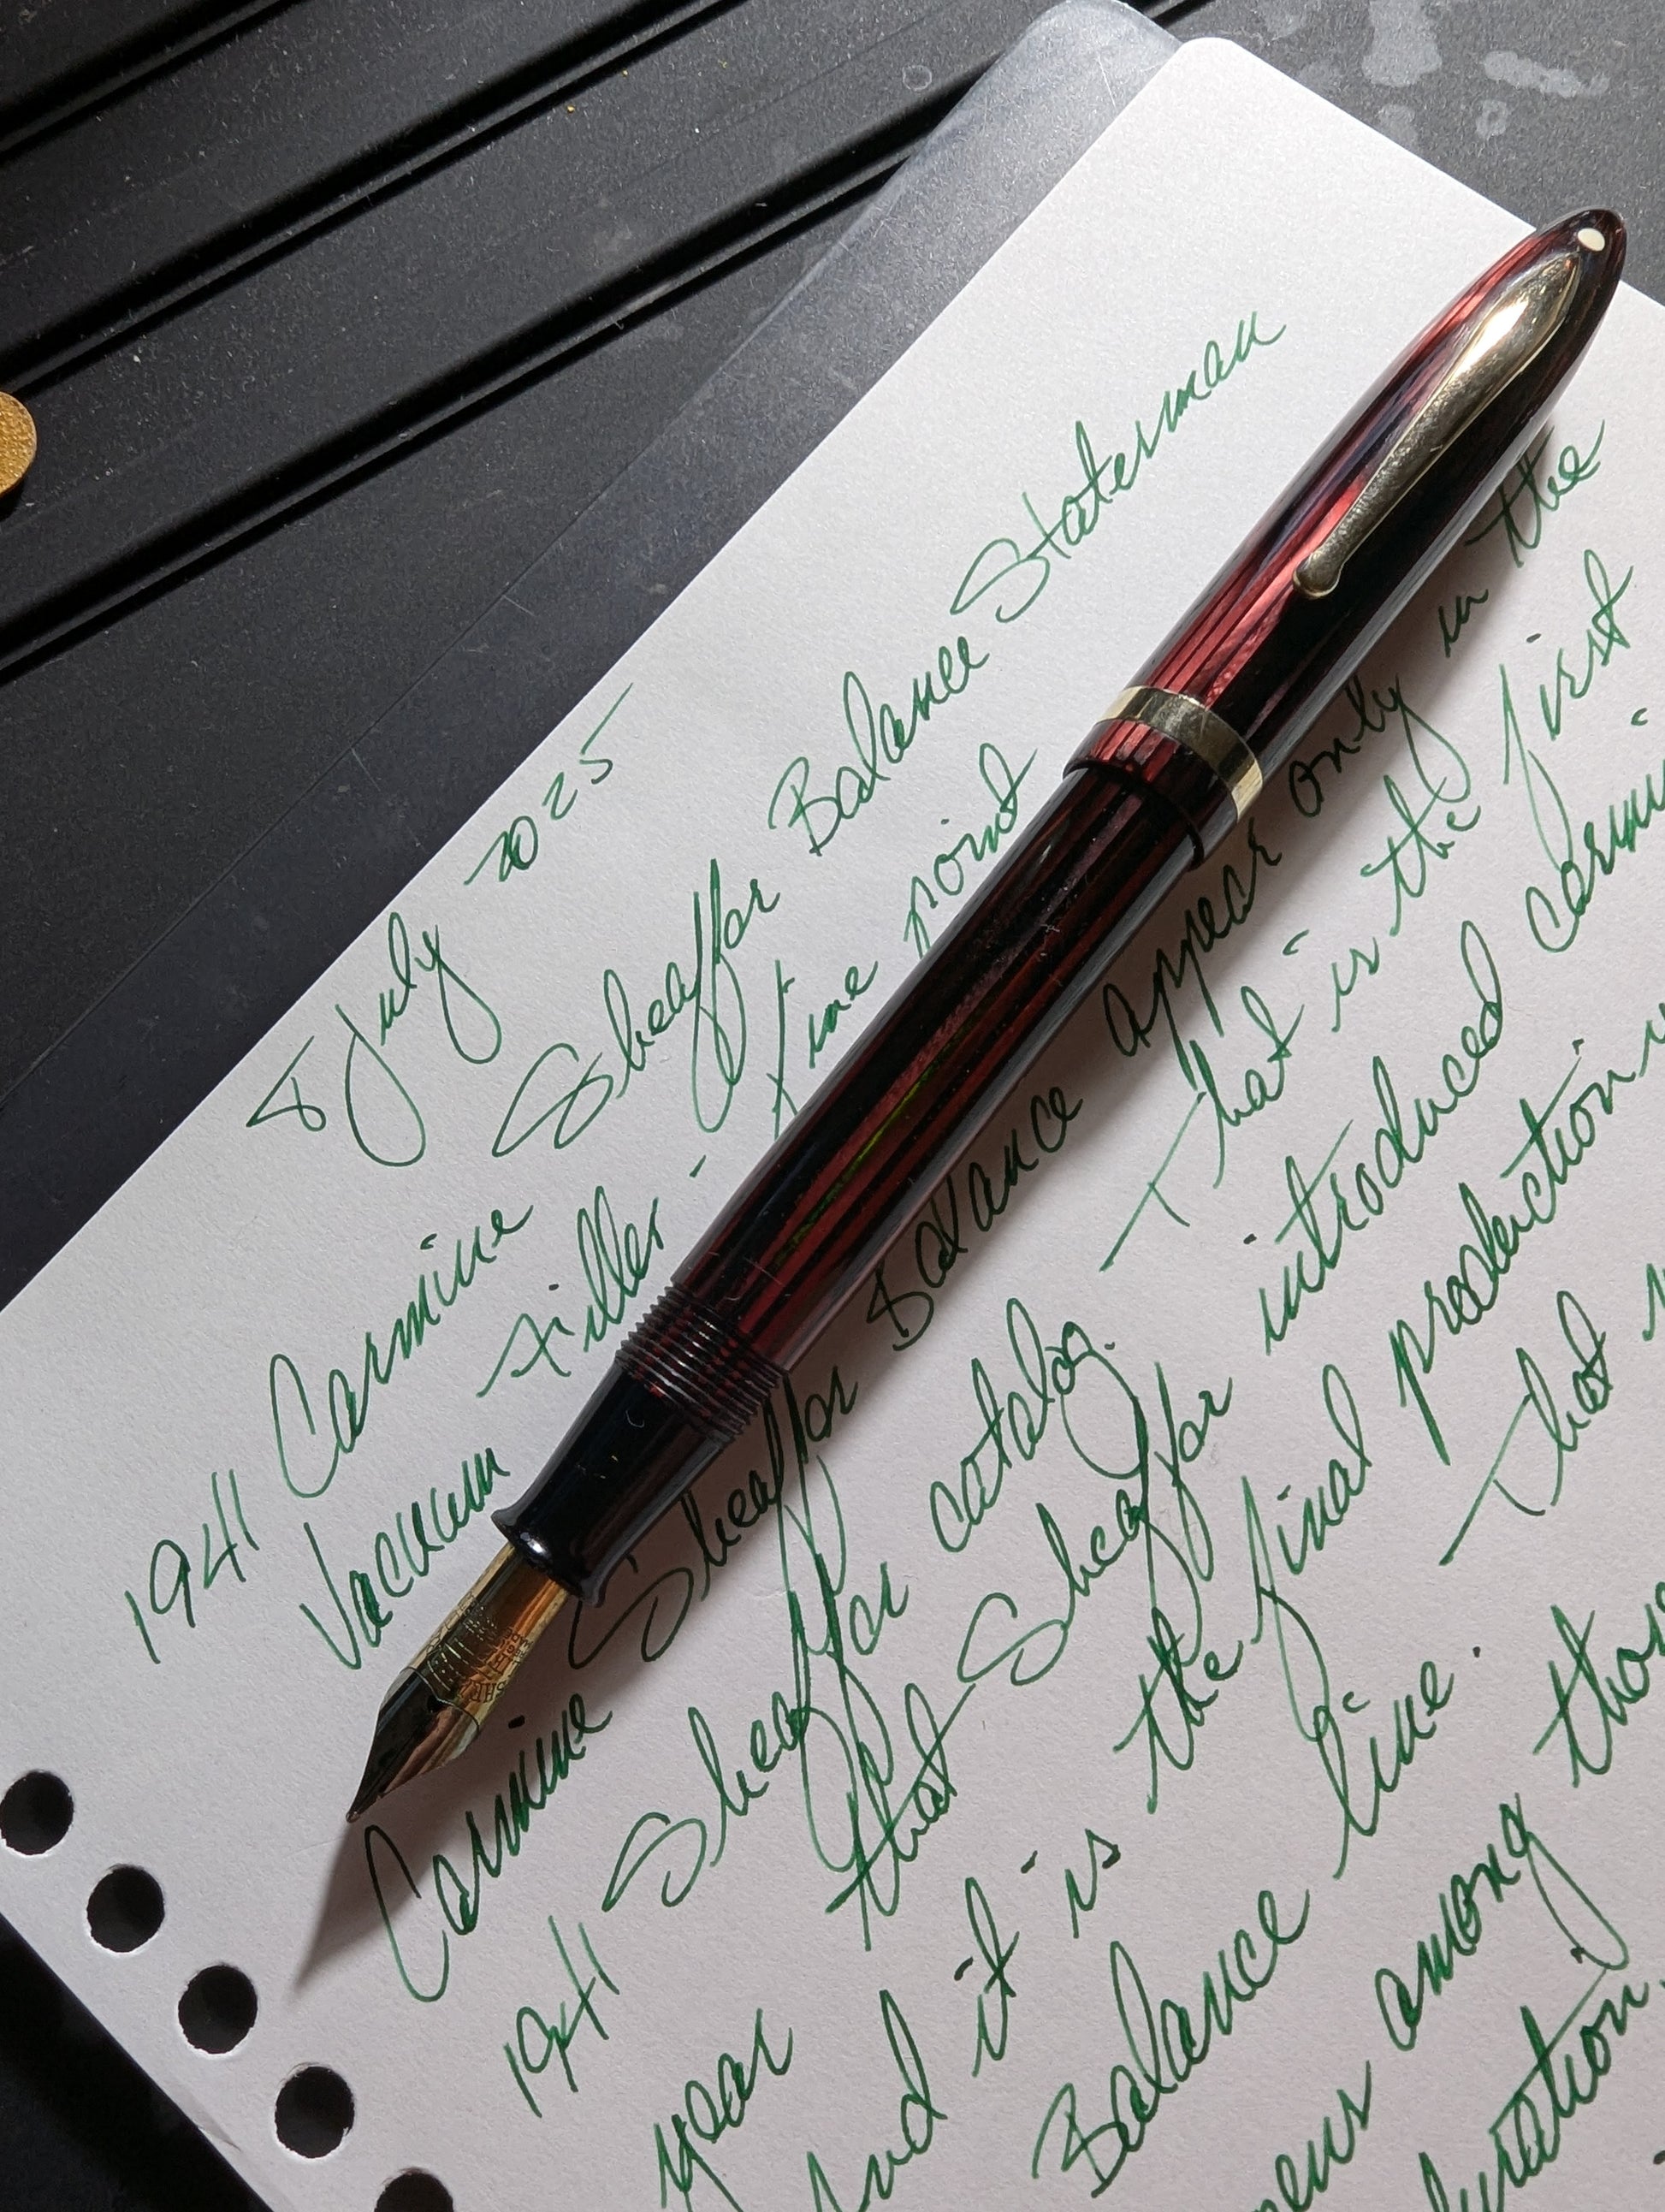 8 July 2025
1941 Carmine Sheaffer Balance Statesman
Vacuum Filler - Fine point
Carmine Sheaffer Balance appear only in the
1941 Sheaffer catalog. That is the first
year that Sheaffer introduced
And it is the final production
Balance line. That
among